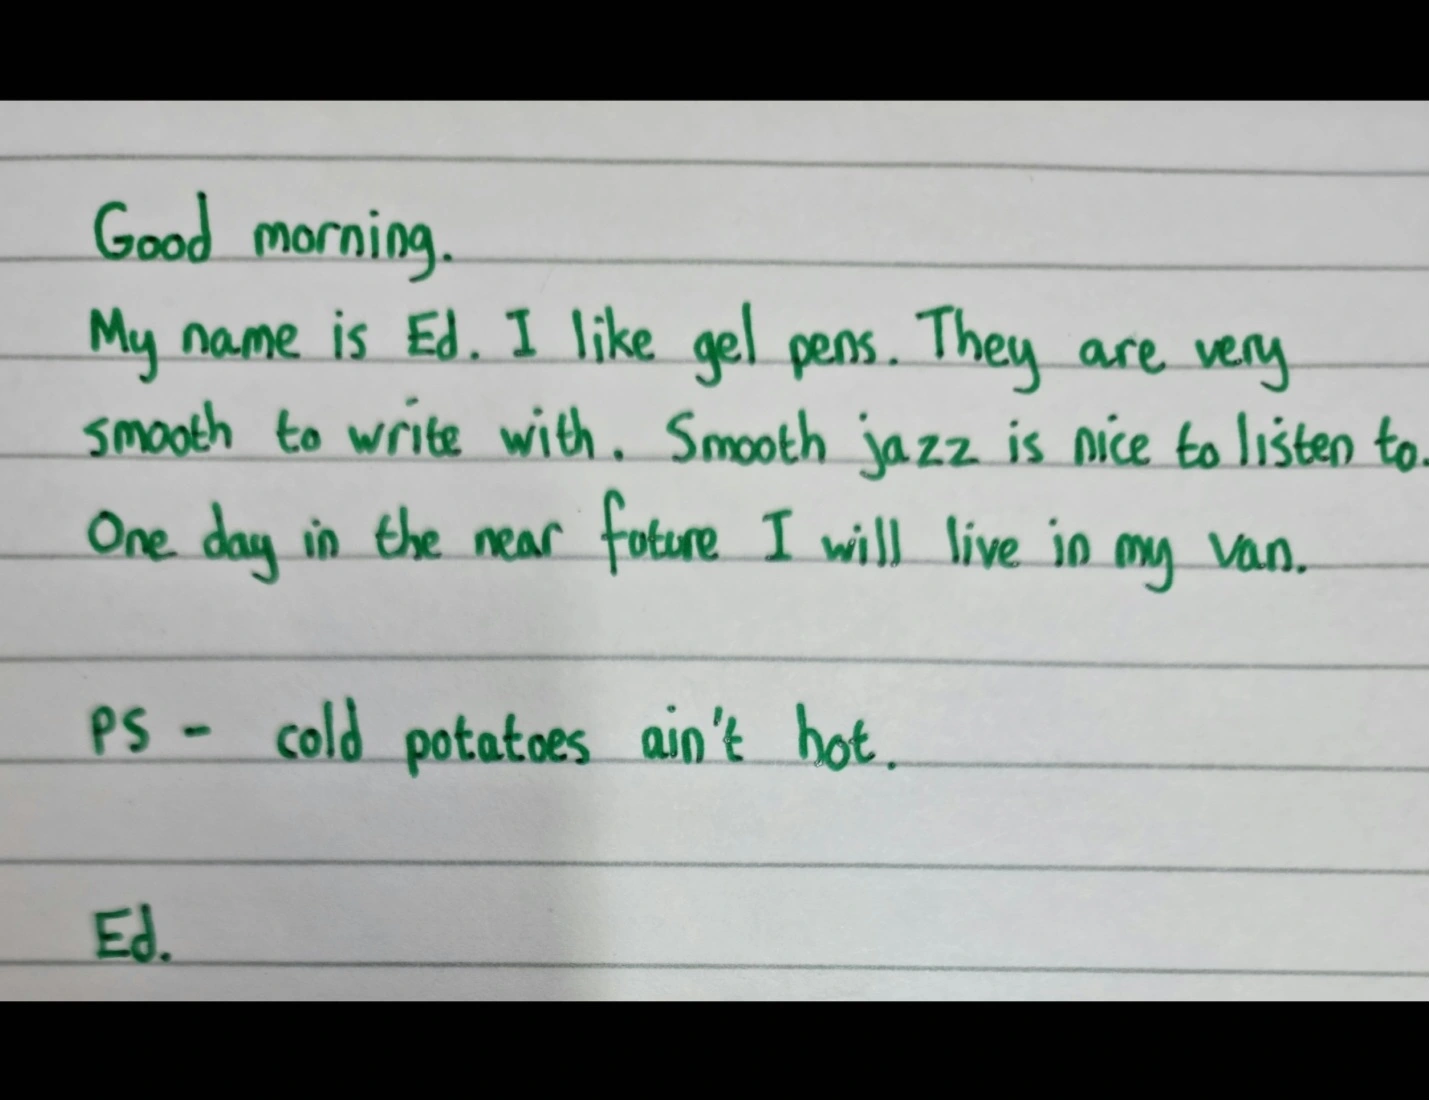 Good morning.
My name is Ed. I like gel pens. They are very
smooth to write with. Smooth jazz is nice to listen to.
One day in the near future I will live in my van.
PS - cold potatoes ain't hot.
Ed.